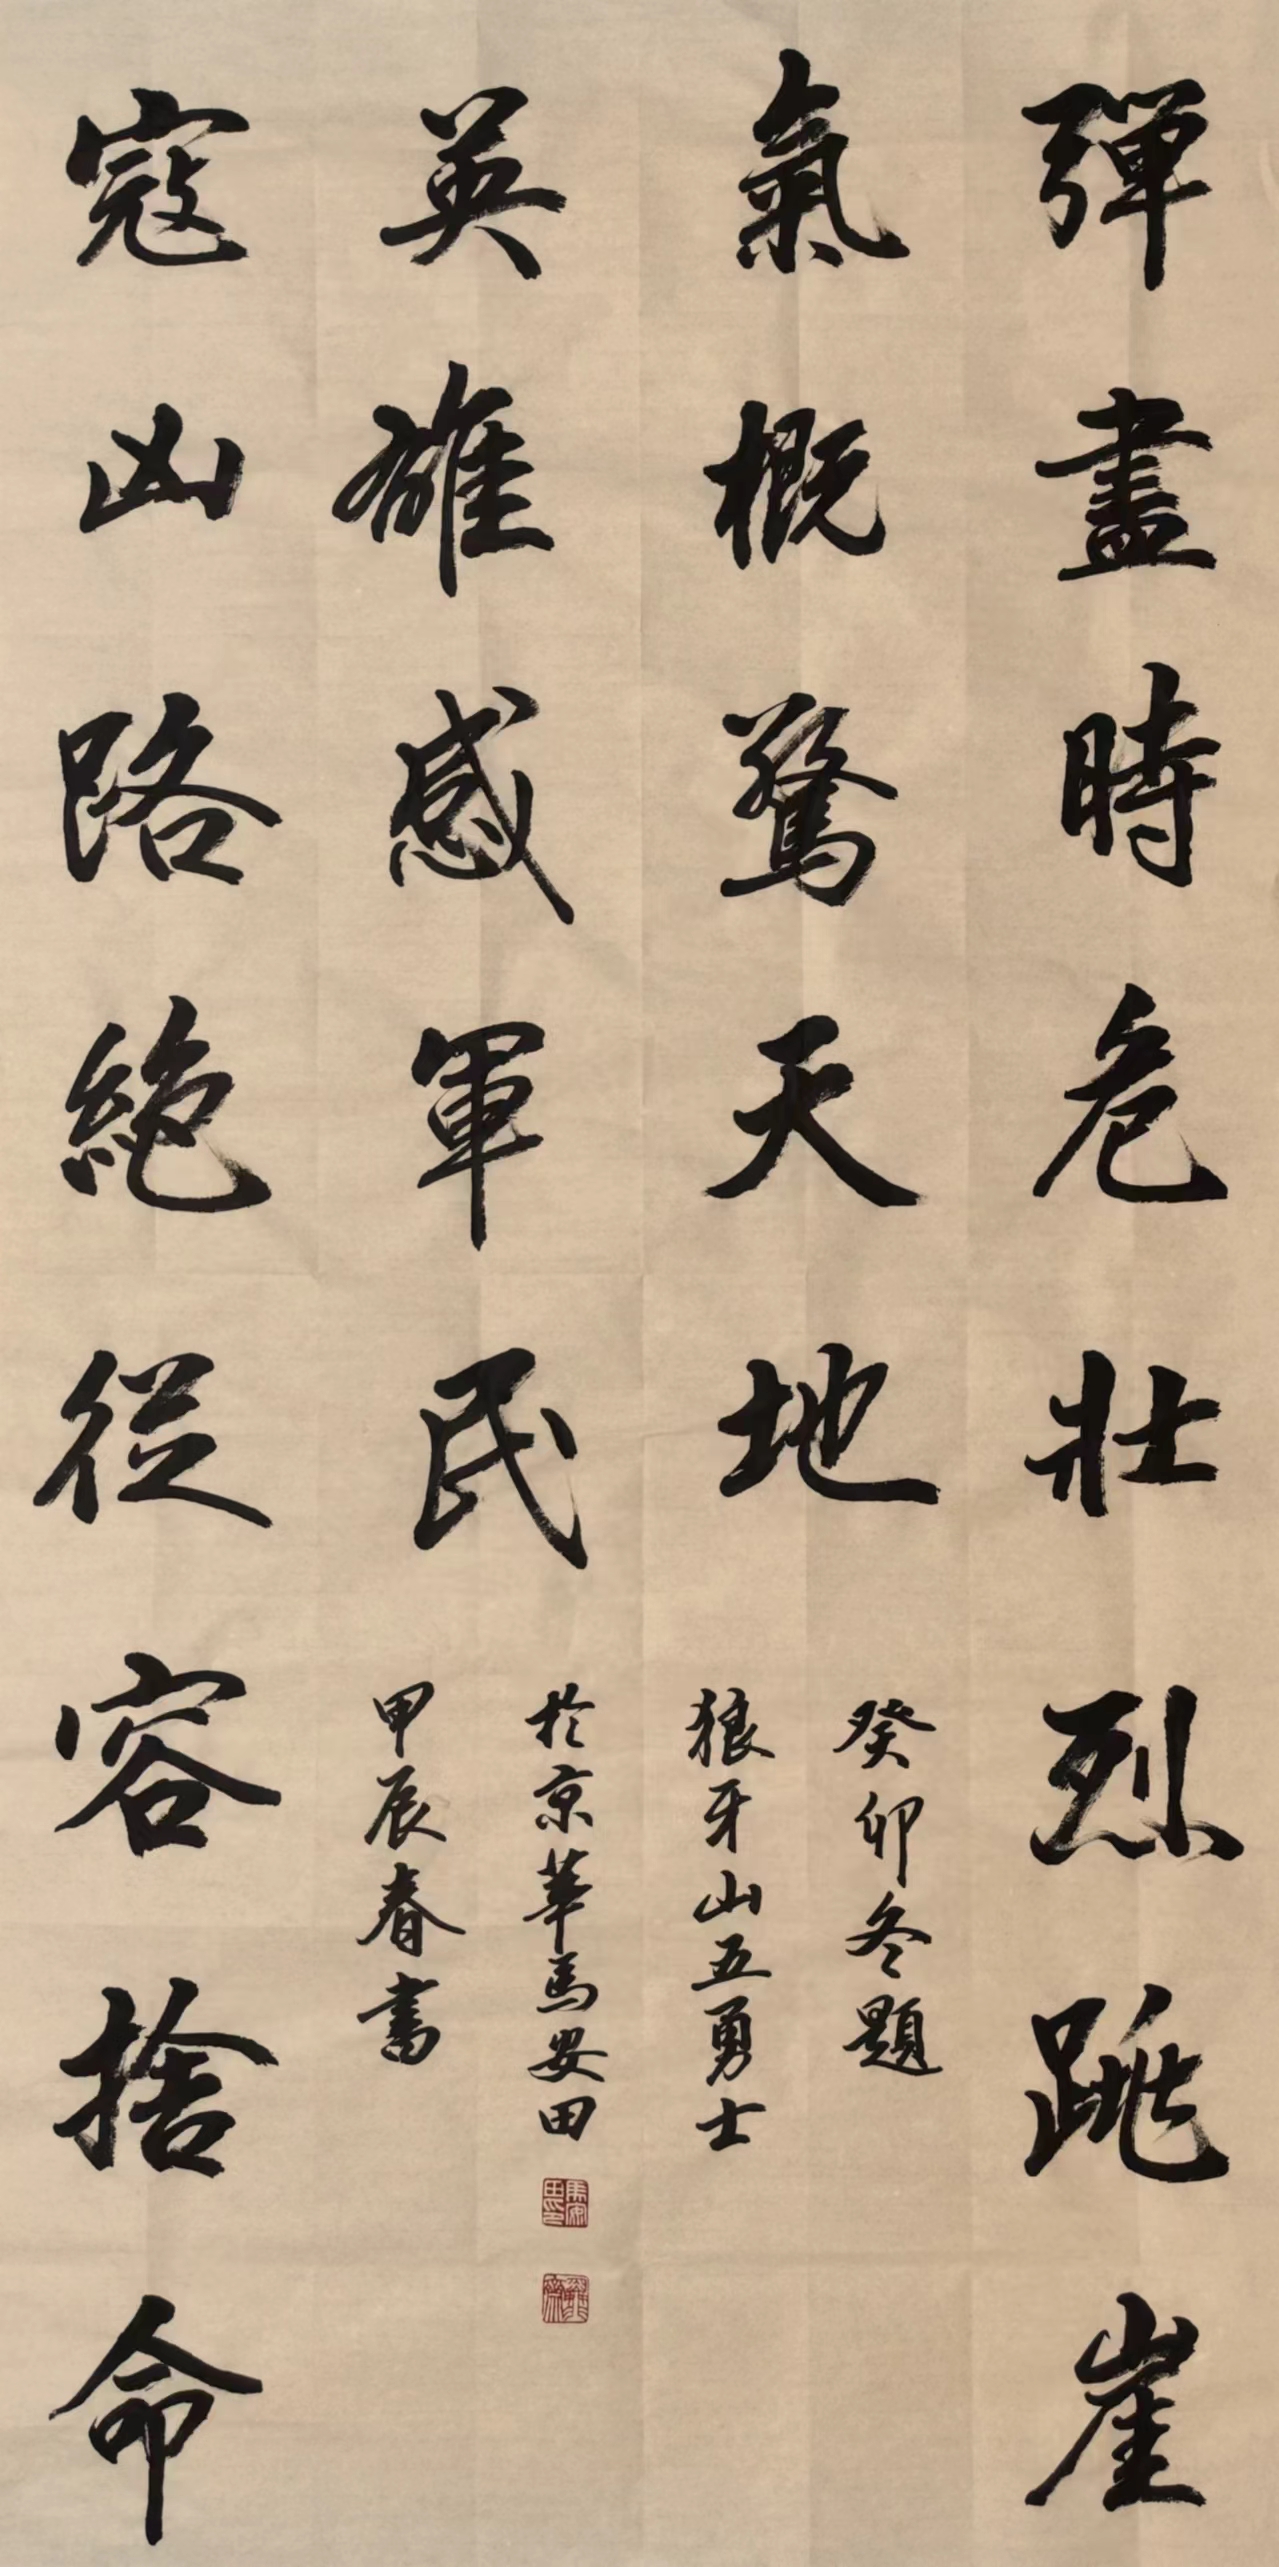 彈盡時危壯烈跳崖
氣概驚天地
癸卯冬題
狼牙山五勇士
寇凶路絕從容捨命
英雄感軍民
甲辰春書
於京華馬安田
馬安田印